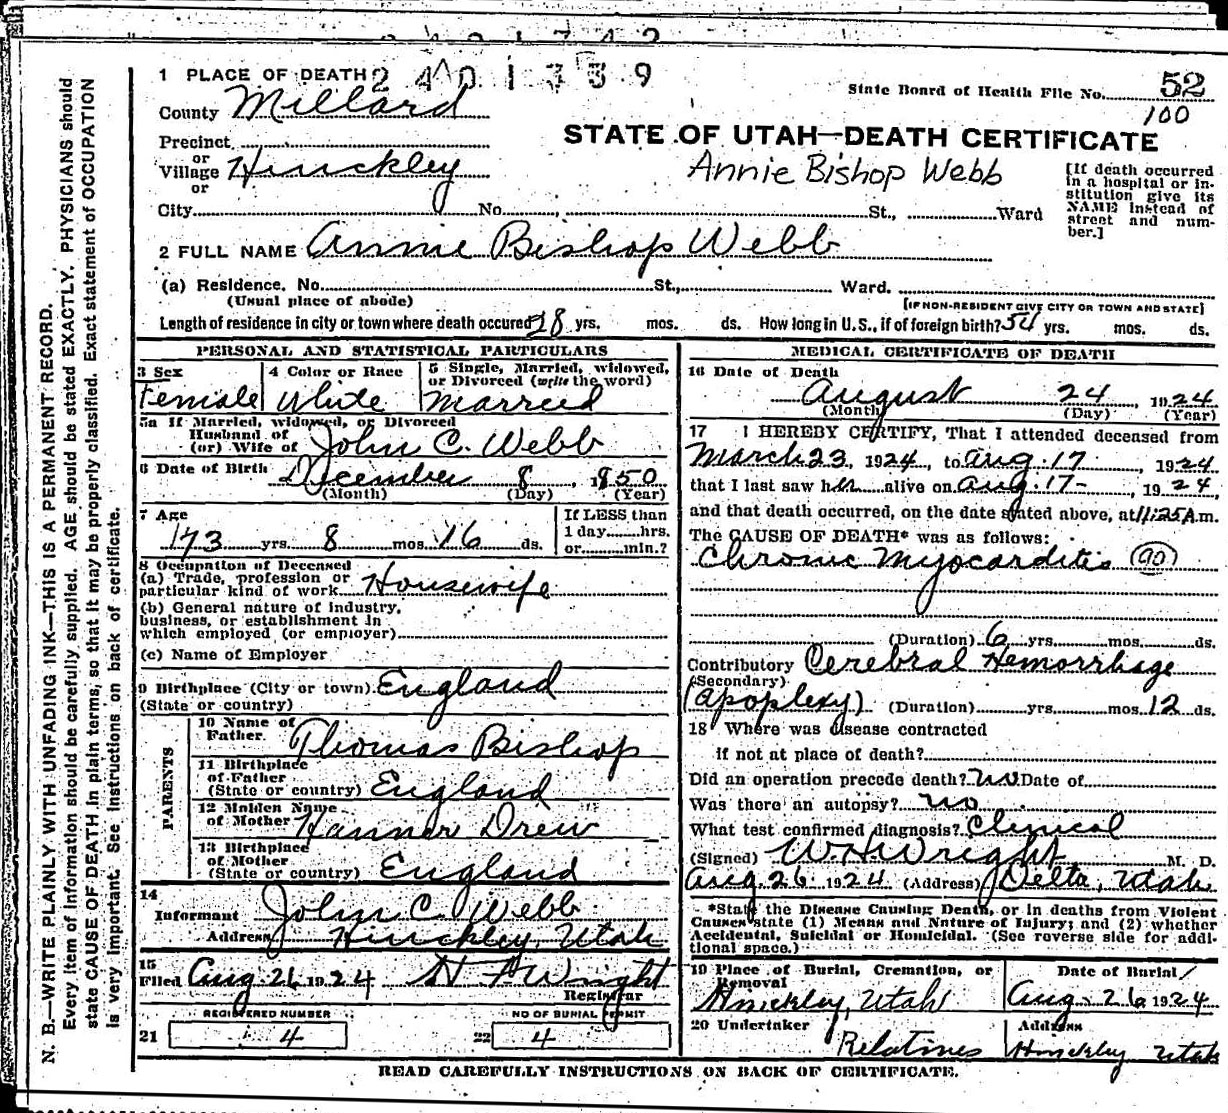 1 PLACE OF DEATH
State Board of Health File No. 52
County Millard
100
STATE OF UTAH—DEATH CERTIFICATE
Precinct
or
Village Hinckley
or
Annie Bishop Webb
[If death occurred in a hospital or institution give its NAME instead of street and number.]
City No. St., Ward
2 FULL NAME Annie Bishop Webb
(a) Residence. No. St., Ward.
(Usual place of abode)
[IF NON-RESIDENT GIVE CITY OR TOWN AND STATE]
Length of residence in city or town where death occured 28 yrs. mos. ds. How long in U.S., if of foreign birth? 54 yrs. mos. ds.
PERSONAL AND STATISTICAL PARTICULARS
3 Sex
Female
4 Color or Race
White
5 Single, Married, widowed,
or Divorced (write the word)
Married
5a If Married, widowed, or Divorced
Husband of
(or) Wife of John C. Webb
6 Date of Birth December 8, 1850
(Month) (Day) (Year)
7 Age
73 yrs. 8 mos. 16 ds.
If LESS than
1 day hrs.
or min.?
8 Occupation of Deceased
(a) Trade, profession or
particular kind of work Housewife
(b) General nature of industry,
business, or establishment in
which employed (or employer)
(c) Name of Employer
9 Birthplace (City or town) England
(State or country)
PARENTS
10 Name of
Father. Thomas Bishop
11 Birthplace
of Father
(State or country) England
12 Maiden Name
of Mother Hanner Drew
13 Birthplace
of Mother
(State or country) England
14
Informant John C. Webb
Address Hinckley, Utah
15
Filed Aug. 26 1924
Registrar
REGISTERED NUMBER
21 4
NO OF BURIAL PERMIT
22 4
MEDICAL CERTIFICATE OF DEATH
16 Date of Death
August 24, 1924
(Month) (Day) (Year)
17 I HEREBY CERTIFY, That I attended deceased from
March 23, 1924, to Aug. 17, 1924
that I last saw her alive on Aug. 17-, 1924,
and that death occurred, on the date stated above, at 11:25 A.m.
The CAUSE OF DEATH* was as follows:
Chronic Myocarditis 90
(Duration) 6 yrs. mos. ds.
Contributory Cerebral Hemorrhage
(Secondary)
(apoplexy) (Duration) yrs. mos. 12 ds.
18 Where was disease contracted
if not at place of death?
Did an operation precede death? no Date of
Was there an autopsy? no
What test confirmed diagnosis? Clinical
(Signed) W.H. Wright M. D.
Aug. 26, 1924 (Address) Delta, Utah
*State the Disease Causing Death, or in deaths from Violent
Causes state (1) Means and Nature of Injury; and (2) whether
Accidental, Suicidal or Homicidal. (See reverse side for additional space.)
19 Place of Burial, Cremation, or
Removal
Hinckley, Utah
Date of Burial
Aug. 26 1924
20 Undertaker
Relatives
Address
Hinckley Utah
READ CAREFULLY INSTRUCTIONS ON BACK OF CERTIFICATE.
N. B.—WRITE PLAINLY WITH UNFADING INK—THIS IS A PERMANENT RECORD.
Every item of information should be carefully supplied. AGE should be stated EXACTLY. PHYSICIANS should
state CAUSE OF DEATH in plain terms, so that it may be properly classified. Exact statement of OCCUPATION
is very important. See instructions on back of certificate.